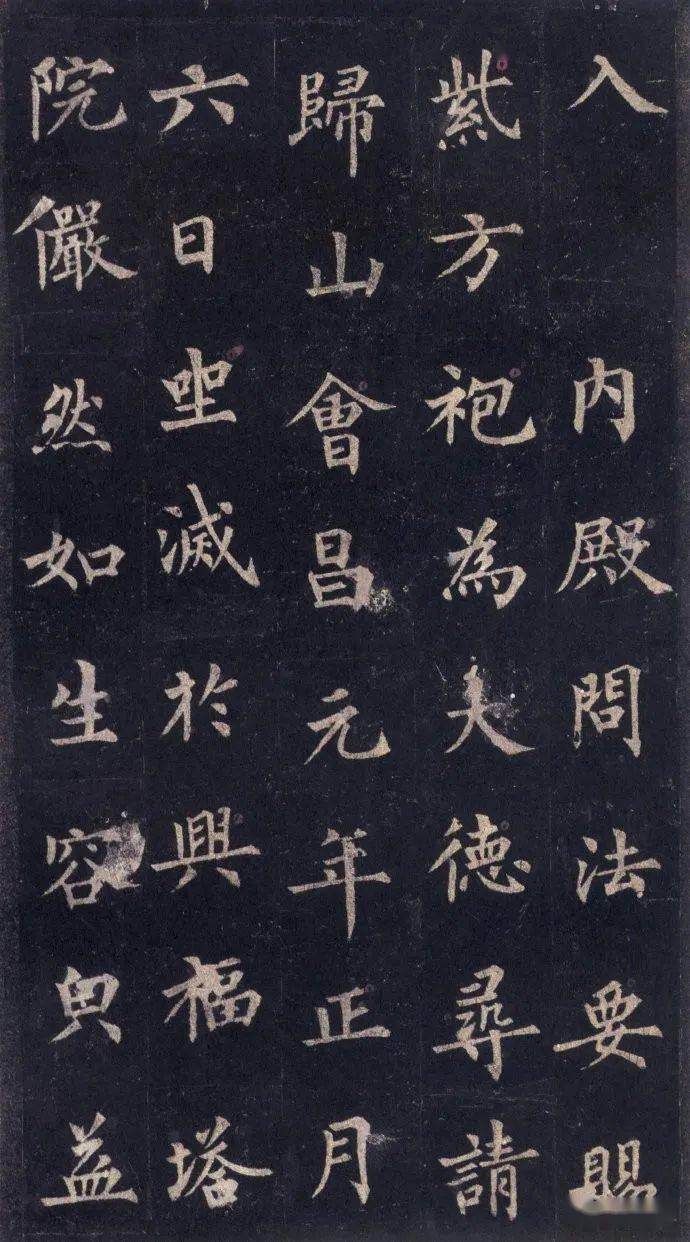 入　內殿問法要賜
紫方袍為大德尋請
歸山會昌元年正月
六日坐滅於興福塔
院儼然如生容皃益